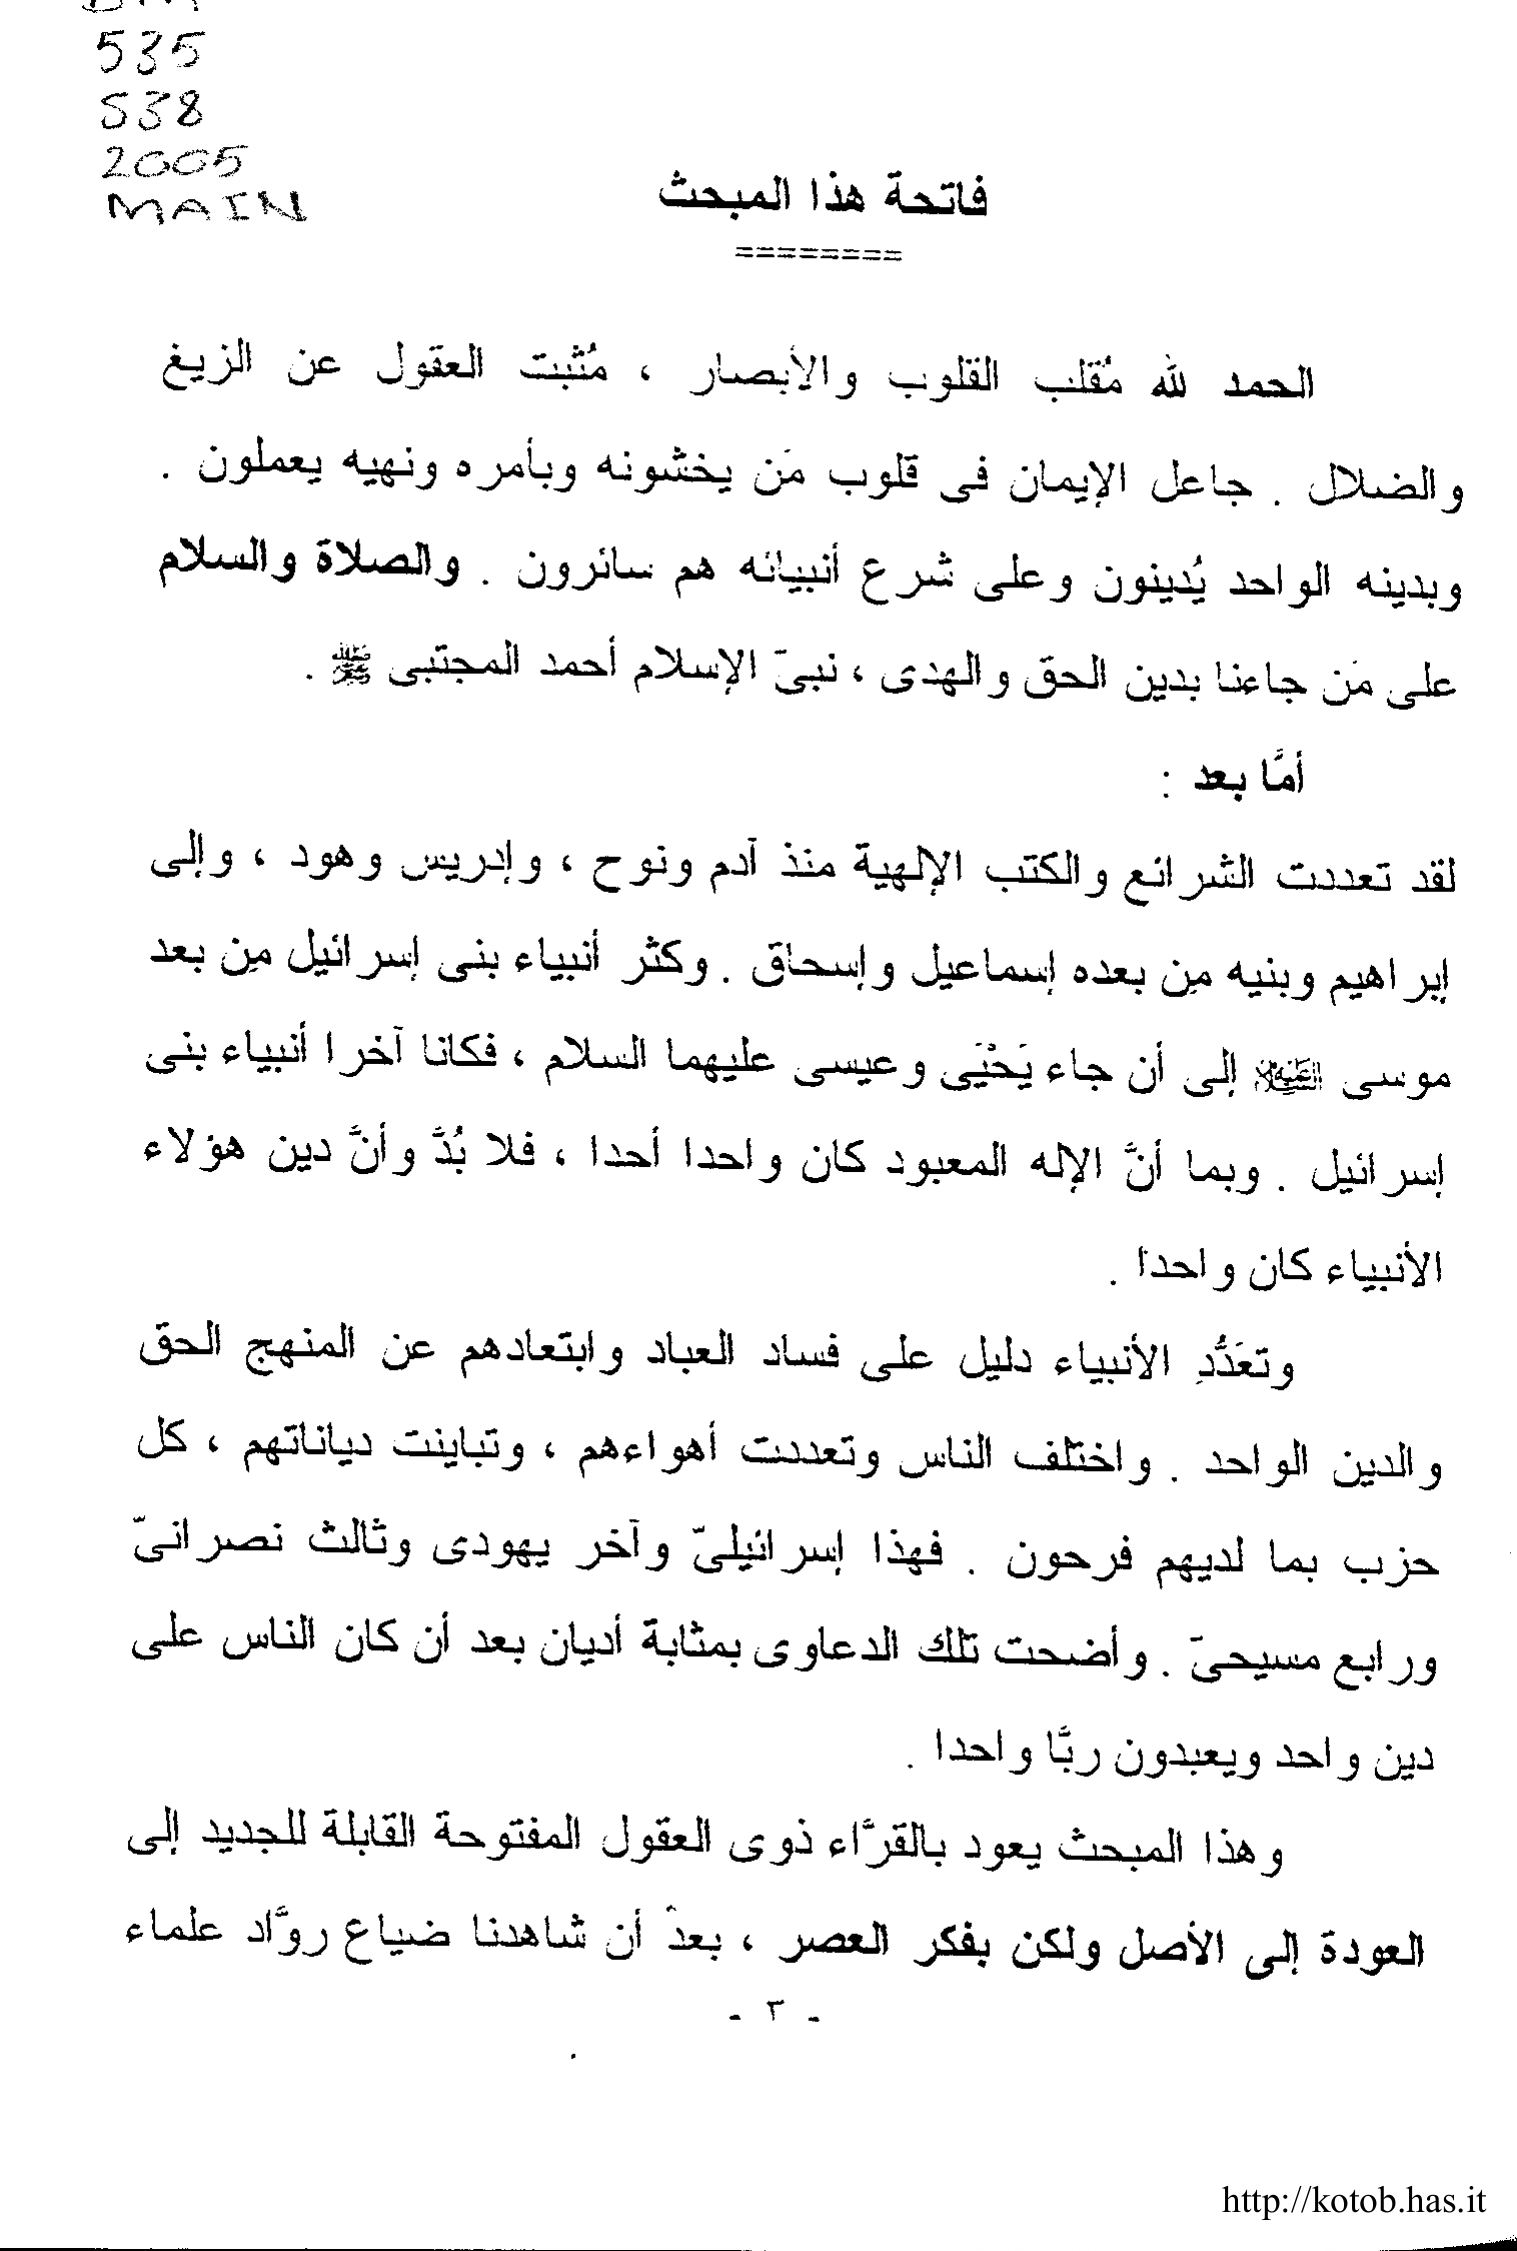 535
538
2005
MAIN
فاتحة هذا المبحث
========
الحمد لله مُقلب القلوب والأبصار ، مُثبت العقول عن الزيغ
والضلال . جاعل الإيمان فى قلوب مَن يخشونه وبأمره ونهيه يعملون .
وبدينه الواحد يُدينون وعلى شرع أنبيائه هم سائرون . والصلاة والسلام
على مَن جاءنا بدين الحق والهدى ، نبىّ الإسلام أحمد المجتبى ﷺ .
أمَّا بعد :
لقد تعددت الشرائع والكتب الإلهية منذ آدم ونوح ، وإدريس وهود ، وإلى
إبراهيم وبنيه مِن بعده إسماعيل وإسحاق . وكثر أنبياء بنى إسرائيل مِن بعد
موسى العليه السلام إلى أن جاء يَحْيَى وعيسى عليهما السلام ، فكانا آخرا أنبياء بنى
إسرائيل . وبما أنَّ الإله المعبود كان واحدا أحدا ، فلا بُدَّ وأنَّ دين هؤلاء
الأنبياء كان واحدا .
وتعَدُّدِ الأنبياء دليل على فساد العباد وابتعادهم عن المنهج الحق
والدين الواحد . واختلف الناس وتعددت أهواءهم ، وتباينت دياناتهم ، كل
حزب بما لديهم فرحون . فهذا إسرائيلىّ وآخر يهودى وثالث نصرانىّ
ورابع مسيحىّ . وأضحت تلك الدعاوى بمثابة أديان بعد أن كان الناس على
دين واحد ويعبدون ربًّا واحدا .
وهذا المبحث يعود بالقرَّاء ذوى العقول المفتوحة القابلة للجديد إلى
العودة إلى الأصل ولكن بفكر العصر ، بعد أن شاهدنا ضياع روَّاد علماء
- ٣ -
http://kotob.has.it